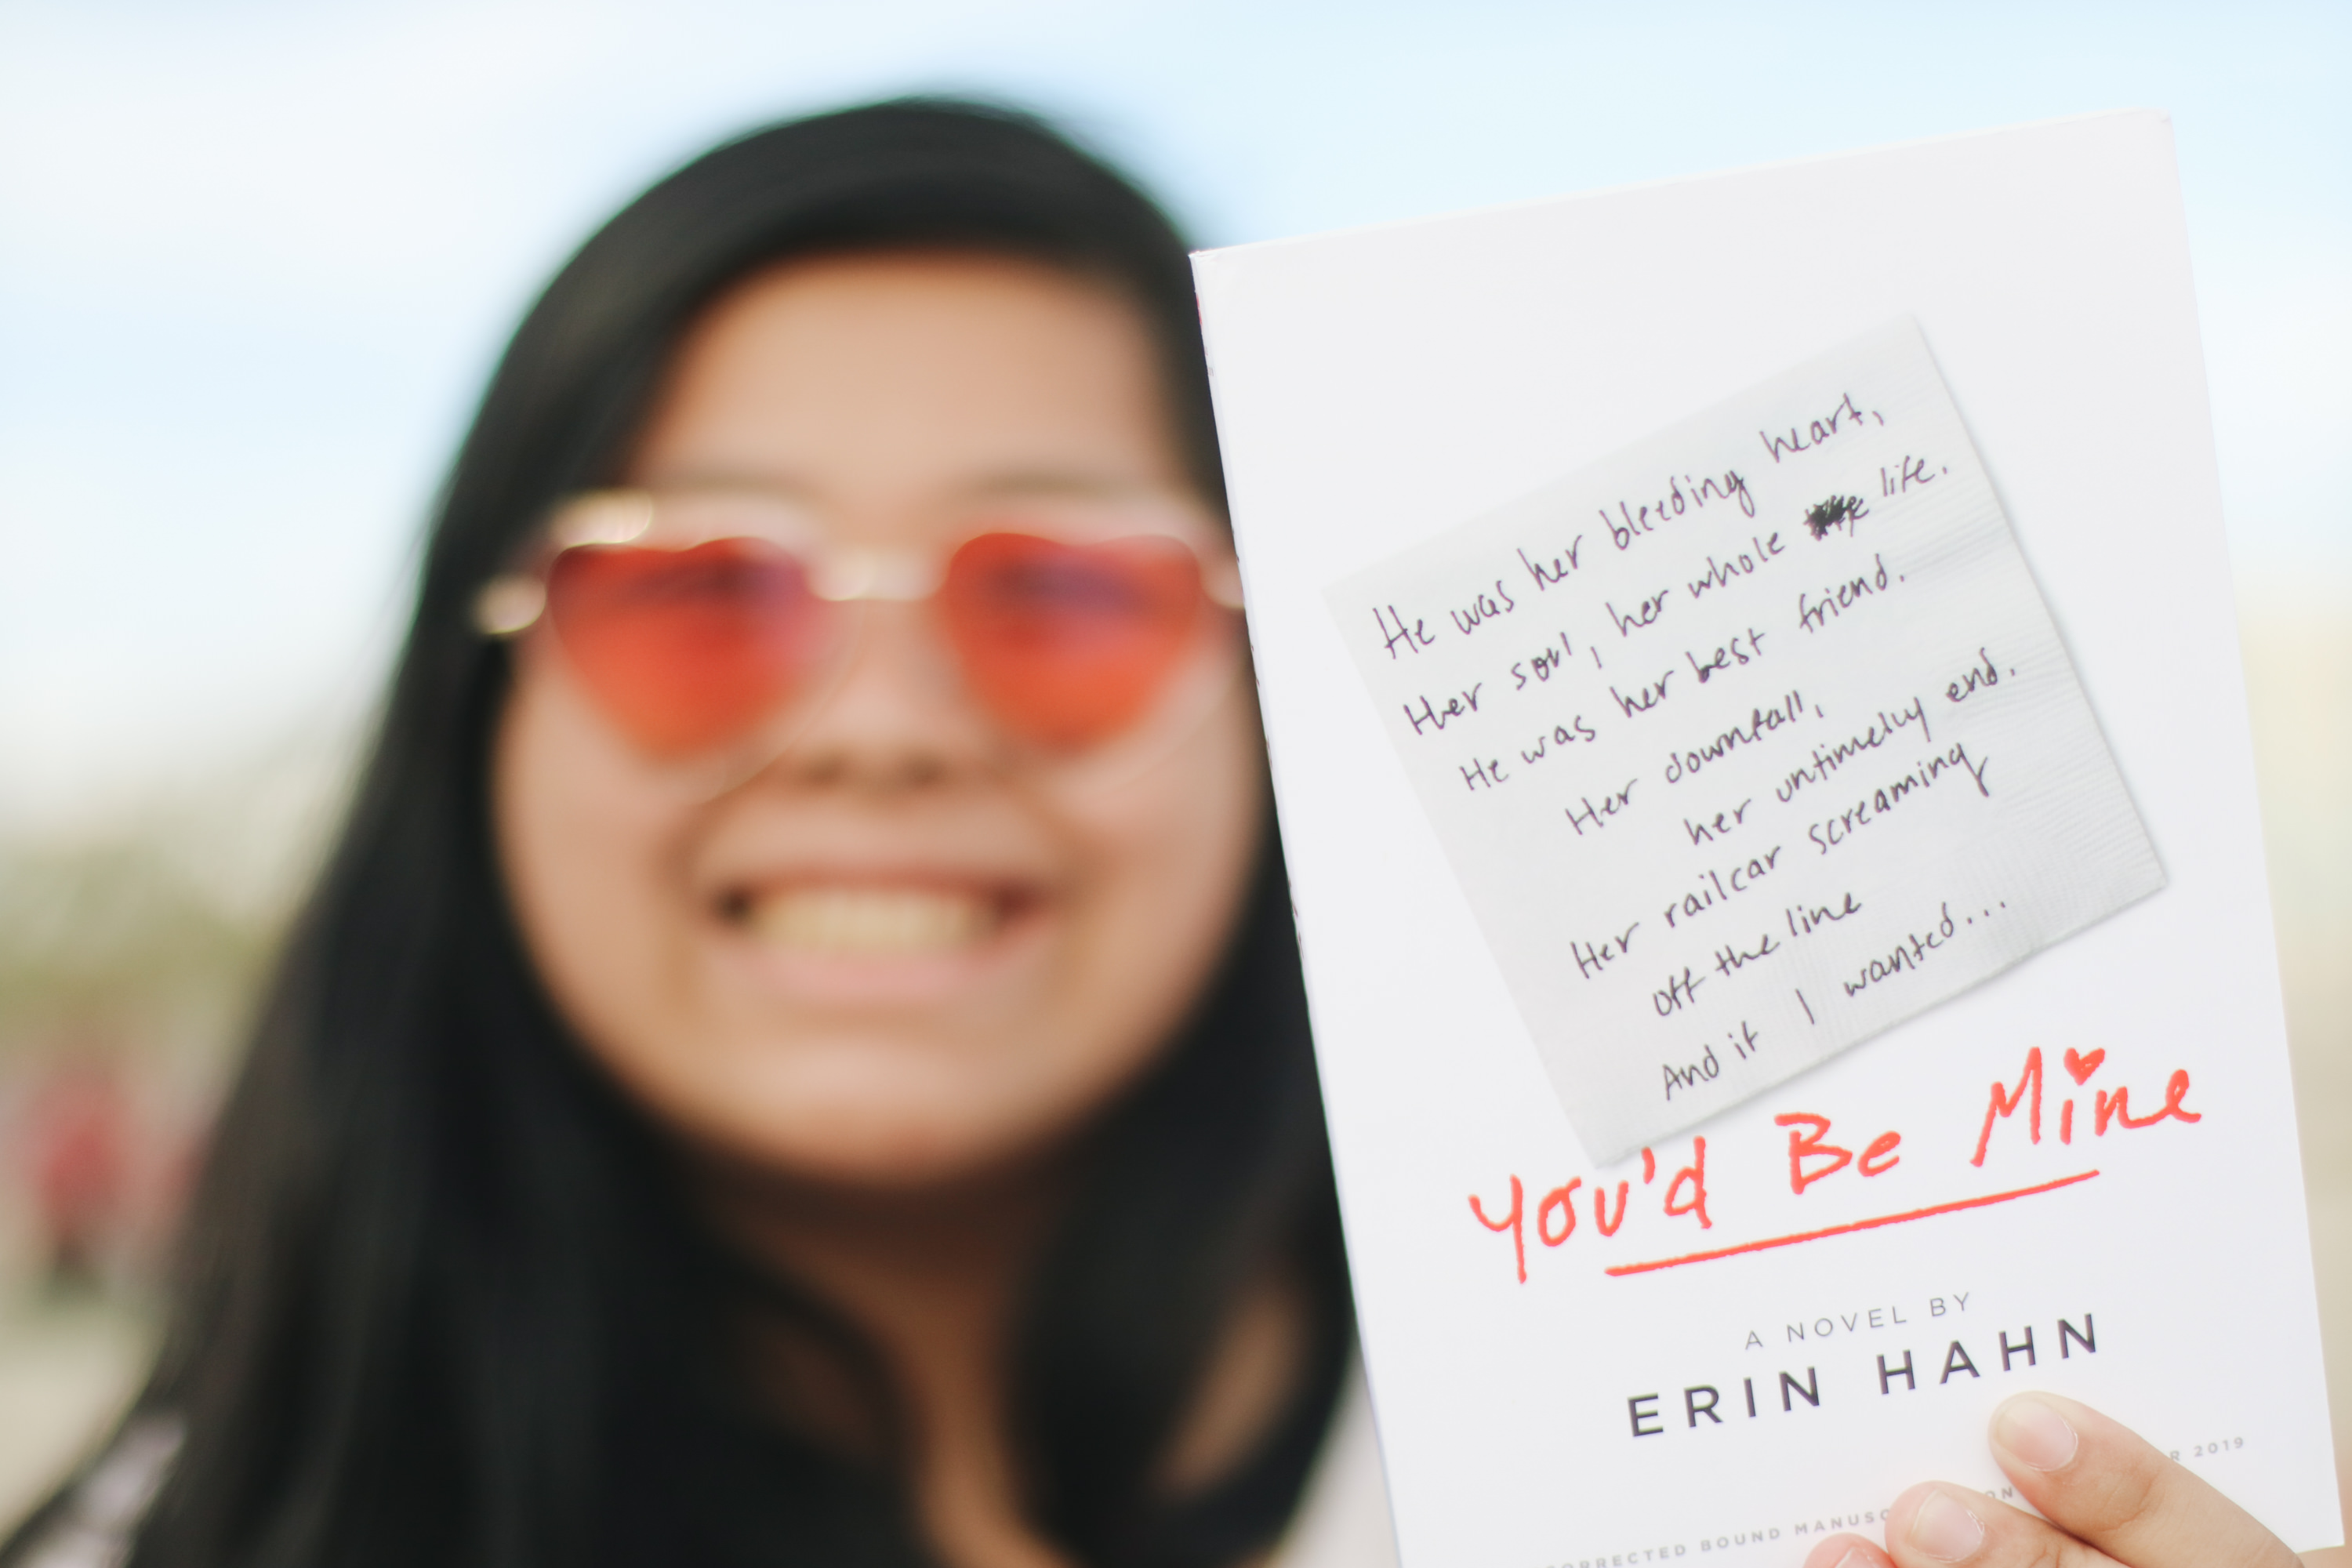 He was her bleeding heart,
Her soul, her whole life.
He was her best friend.
Her downfall,
her untimely end.
Her railcar screaming
off the line
And if I wanted...
You'd Be Mine
A NOVEL BY
ERIN HAHN
2019
BOUND